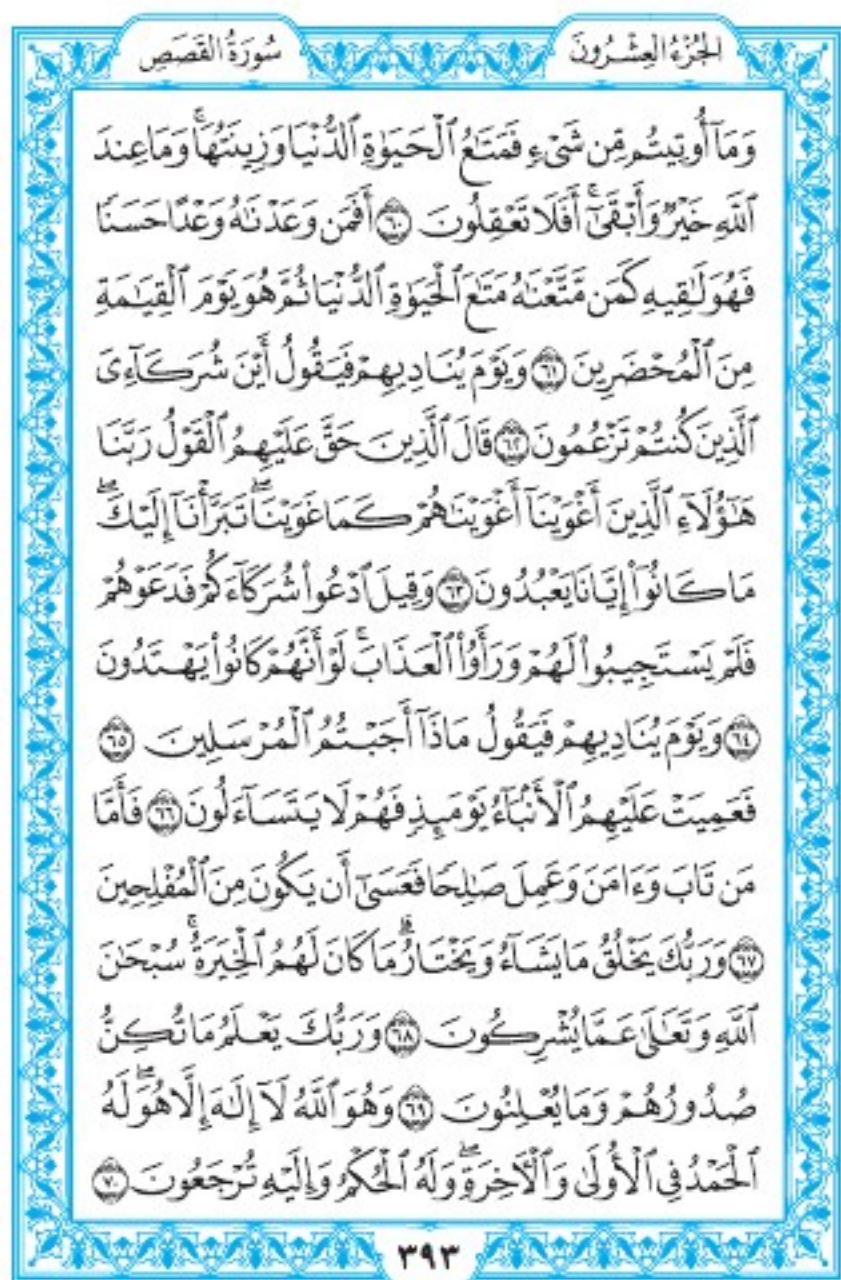 الجُزْءُ العِشْرُونَ
سُورَةُ القَصَصِ
وَمَآ أُوتِيتُم مِّن شَىْءٍ فَمَتَٰعُ ٱلْحَيَوٰةِ ٱلدُّنْيَا وَزِينَتُهَاۚ وَمَا عِندَ
ٱللَّهِ خَيْرٌ وَأَبْقَىٰٓۚ أَفَلَا تَعْقِلُونَ ٦٠ أَفَمَن وَعَدْنَٰهُ وَعْدًا حَسَنًا
فَهُوَ لَٰقِيهِ كَمَن مَّتَّعْنَٰهُ مَتَٰعَ ٱلْحَيَوٰةِ ٱلدُّنْيَا ثُمَّ هُوَ يَوْمَ ٱلْقِيَٰمَةِ
مِنَ ٱلْمُحْضَرِينَ ٦١ وَيَوْمَ يُنَادِيهِمْ فَيَقُولُ أَيْنَ شُرَكَآءِىَ
ٱلَّذِينَ كُنتُمْ تَزْعُمُونَ ٦٢ قَالَ ٱلَّذِينَ حَقَّ عَلَيْهِمُ ٱلْقَوْلُ رَبَّنَا
هَٰٓؤُلَآءِ ٱلَّذِينَ أَغْوَيْنَآ أَغْوَيْنَٰهُمْ كَمَا غَوَيْنَاۖ تَبَرَّأْنَآ إِلَيْكَۖ
مَا كَانُوٓا۟ إِيَّانَا يَعْبُدُونَ ٦٣ وَقِيلَ ٱدْعُوا۟ شُرَكَآءَكُمْ فَدَعَوْهُمْ
فَلَمْ يَسْتَجِيبُوا۟ لَهُمْ وَرَأَوُا۟ ٱلْعَذَابَۚ لَوْ أَنَّهُمْ كَانُوا۟ يَهْتَدُونَ
٦٤ وَيَوْمَ يُنَادِيهِمْ فَيَقُولُ مَاذَآ أَجَبْتُمُ ٱلْمُرْسَلِينَ ٦٥
فَعَمِيَتْ عَلَيْهِمُ ٱلْأَنۢبَآءُ يَوْمَئِذٍ فَهُمْ لَا يَتَسَآءَلُونَ ٦٦ فَأَمَّا
مَن تَابَ وَءَامَنَ وَعَمِلَ صَٰلِحًا فَعَسَىٰٓ أَن يَكُونَ مِنَ ٱلْمُفْلِحِينَ
٦٧ وَرَبُّكَ يَخْلُقُ مَا يَشَآءُ وَيَخْتَارُۗ مَا كَانَ لَهُمُ ٱلْخِيَرَةُۚ سُبْحَٰنَ
ٱللَّهِ وَتَعَٰلَىٰ عَمَّا يُشْرِكُونَ ٦٨ وَرَبُّكَ يَعْلَمُ مَا تُكِنُّ
صُدُورُهُمْ وَمَا يُعْلِنُونَ ٦٩ وَهُوَ ٱللَّهُ لَآ إِلَٰهَ إِلَّا هُوَۖ لَهُ
ٱلْحَمْدُ فِى ٱلْأُولَىٰ وَٱلْـَٔاخِرَةِۖ وَلَهُ ٱلْحُكْمُ وَإِلَيْهِ تُرْجَعُونَ ٧٠
٣٩٣